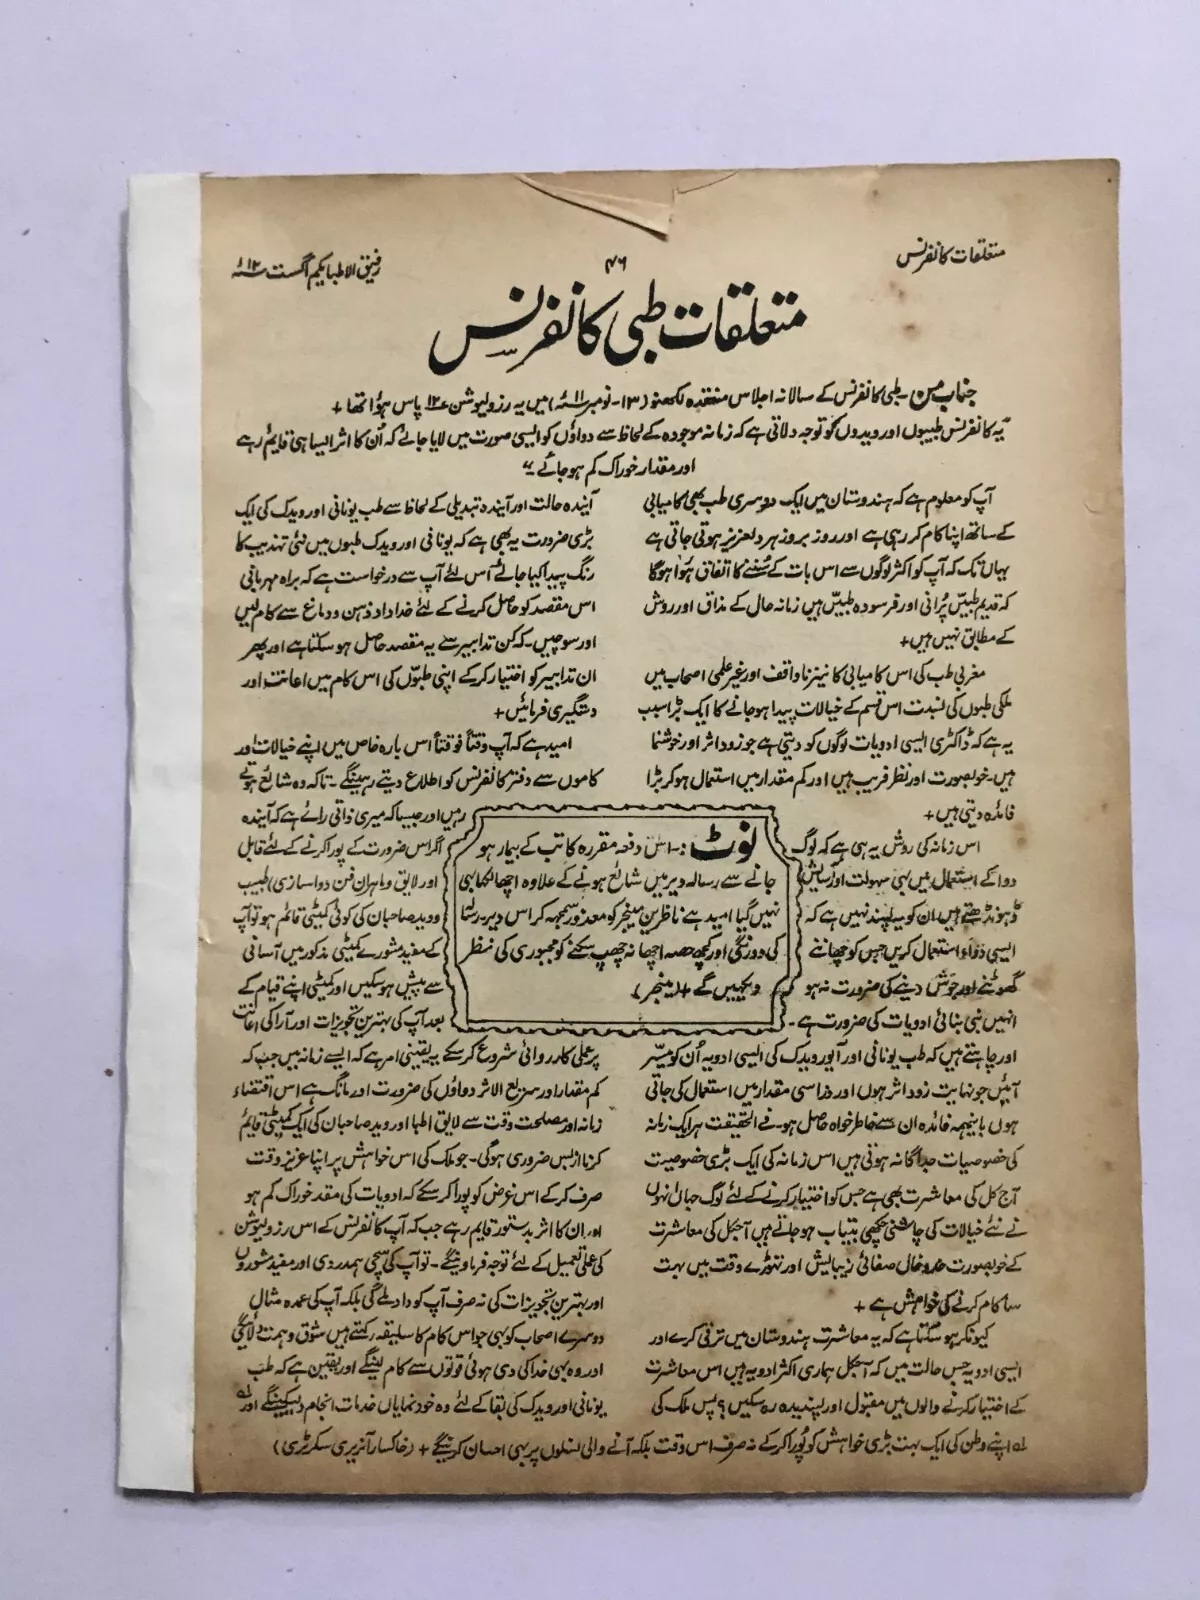 متعلقات کانفرنس
۴۶
رفیق الاطبا یکم اگست ۱۲ء
متعلقات طبی کانفرنس
جناب من۔ طبی کانفرنس کے سالانہ اجلاس منعقدہ لکھنو (۱۳۔ نومبر ۱۱ء) میں یہ رزولیوشن ۱۲ پاس ہؤا تھا +
یہ کانفرنس طبیبوں اور ویدوں کو توجہ دلاتی ہے کہ زمانہ موجودہ کے لحاظ سے دواؤں کو ایسی صورت میں لایا جائے کہ اُن کا اثر ایسا ہی قایم رہے
اور مقدار خوراک کم ہو جائے۔"
آپ کو معلوم ہے کہ ہندوستان میں ایک دوسری طب بھی کامیابی
کے ساتھ اپنا کام کر رہی ہے اور روز بروز ہر دلعزیز ہوتی جاتی ہے
یہاں تک کہ آپ کو اکثر لوگوں سے اس بات کے سُننے کا اتفاق ہؤا ہوگا
کہ قدیم طبیں پُرانی اور فرسودہ طبیں ہیں زمانہ حال کے مذاق اور روش
کے مطابق نہیں ہیں +
مغربی طب کی اس کامیابی کا نیز ناواقف اور غیر علمی اصحاب میں
ملکی طبوں کی نسبت اس قسم کے خیالات پیدا ہو جانے کا ایک بڑا سبب
یہ ہے کہ ڈاکٹری ایسی ادویات لوگوں کو دیتی ہے جو زود اثر اور خوشنما
ہیں۔ خوبصورت اور نظر فریب ہیں اور کم مقدار میں استمال ہو کر بڑا
فائدہ دیتی ہیں +
اس زمانہ کی روش یہ ہی ہے کہ لوگ
دوا کے استعمال میں بھی سہولت اور آسایش
ڈہونڈھتے ہیں ان کو یہ پسند نہیں ہے کہ
ایسی دوا وہ استعمال کریں جس کو چھاننے
گھوٹنے اور جوش دینے کی ضرورت نہ ہو
انہیں بنی بنائی ادویات کی ضرورت ہے۔
اور چاہتے ہیں کہ طب یونانی اور آیورویدک کی ایسی ادویہ اُن کو میسر
آئیں جو نہایت زود اثر ہوں اور ذرا سی مقدار میں استعمال کی جاتی
ہوں بااینہمہ فائدہ ان سے خاطر خواہ حاصل ہو۔ فے الحقیقت ہر ایک زمانہ
کی خصوصیات جداگانہ ہوتی ہیں اس زمانہ کی ایک بڑی خصوصیت
آج کل کی معاشرت بھی ہے جس کو اختیار کرنے کے لئے لوگ جہاں انہوں
نے نئے خیالات کی چاشنی چکھی بیتاب ہو جاتے ہیں آجکل کی معاشرت
کے خوبصورت خدوخال صفائی زیبایش اور تھوڑے وقت میں بہت
سا کام کرنے کی خواہش ہے +
کیونکر ہو سکتا ہے کہ یہ معاشرت ہندوستان میں ترقی کرے اور
ایسی ادویہ جس حالت میں کہ آجکل ہماری اکثر ادویہ ہیں اس معاشرت
کے اختیار کرنے والوں میں مقبول اور پسندیدہ رہ سکیں؟ پس ملک کی
آیندہ حالت اور آیندہ تبدیلی کے لحاظ سے طب یونانی اور ویدک کی ایک
بڑی ضرورت یہ بھی ہے کہ یونانی اور ویدک طبوں میں نئی تہذیب کا
رنگ پیدا کیا جائے اس لئے آپ سے درخواست ہے کہ براہ مہربانی
اس مقصد کو حاصل کرنے کے لئے خداداد ذہن و دماغ سے کام لیں
اور سوچیں۔ کہ کن تدابیر سے یہ مقصد حاصل ہو سکتا ہے اور پھر
ان تدابیر کو اختیار کر کے اپنی طبوں کی اس کام میں اعانت اور
دستگیری فرمائیں +
امید ہے کہ آپ وقتاً فوقتاً اس بارہ خاص میں اپنے خیالات اور
کاموں سے دفتر کانفرنس کو اطلاع دیتے رہینگے۔ تاکہ وہ شائع ہوتے
رہیں اور جیسا کہ میری ذاتی رائے ہے کہ آیندہ
اگر اس ضرورت کے پورا کرنے کے لئے قابل
اور لایق و ماہران فن دواسازی طبیب
و وید صاحبان کی کوئی کمیٹی قائم ہو تو آپ
کے مفید مشورے کمیٹی مذکور میں آسانی
سے پیش ہو سکیں اور کمیٹی اپنے قیام کے
بعد آپ کی بہترین تجویزات اور آرا کی اعانت
پر عملی کارروائی شروع کر سکے یہ یقینی امر ہے کہ ایسے زمانہ میں جب کہ
کم مقدار اور سریع الاثر دواؤں کی ضرورت اور مانگ ہے اس اقتضاء
زمانہ اور مصلحت وقت سے لایق اطبا اور وید صاحبان کی ایک کمیٹی قایم
کرنا از بس ضروری ہوگی۔ جو ملک کی اس خواہش پر اپنا عزیز وقت
صرف کر کے اس غرض کو پورا کر سکے کہ ادویات کی مقدار خوراک کم ہو
اور ان کا اثر بدستور قایم رہے جب کہ آپ کانفرنس کے اس رزولیوشن
کی عملی تعمیل کے لئے توجہ فرماوینگے۔ تو آپ کی سچی ہمدردی اور مفید مشوروں
اور بہترین تجویزات کی نہ صرف آپ کو داد ملے گی بلکہ آپ کی عمدہ مثال
دوسرے اصحاب کو بھی جو اس کام کا سلیقہ رکھتے ہیں شوق و ہمت دلائیگی
اور وہ بھی خدا کی دی ہوئی قوتوں سے کام لینگے اور یقین ہے کہ طب
یونانی اور ویدک کی بقا کے لئے وہ خود نمایاں خدمات انجام دیسکینگے اور
اپنے وطن کی ایک بہت بڑی خواہش کو پُورا کر کے نہ صرف اس وقت بلکہ آنے والی نسلوں پر بھی احسان کرینگے + (خاکسار آنریری سکرٹری)
نوٹ :- اس دفعہ مقررہ کاتب کے بیمار ہو
جانے سے رسالہ دیر میں شائع ہونے کے علاوہ اچھا لکھا بھی
نہیں گیا امید ہے ناظرین مینجر کو معذور سمجھ کر اس دیر۔ رسالہ
کی دورنگی اور کچھ حصہ اچھا نہ چھپ سکنے کو مجبوری کی نظر
دیکھیں گے + (مینجر)